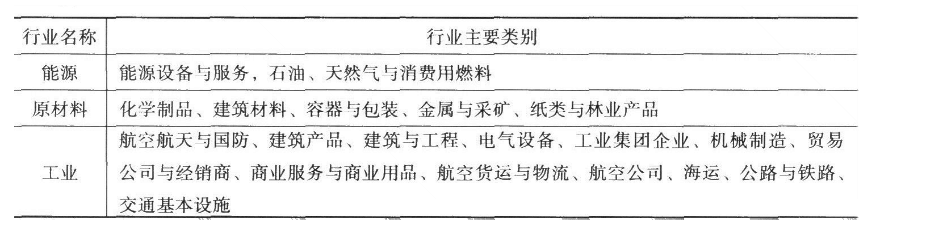 行业名称 行业主要类别
能源 能源设备与服务，石油、天然气与消费用燃料
原材料 化学制品、建筑材料、容器与包装、金属与采矿、纸类与林业产品
航空航天与国防、建筑产品、建筑与工程、电气设备、工业集团企业、机械制造、贸易
工业 公司与经销商、商业服务与商业用品、航空货运与物流、航空公司、海运、公路与铁路、
交通基本设施